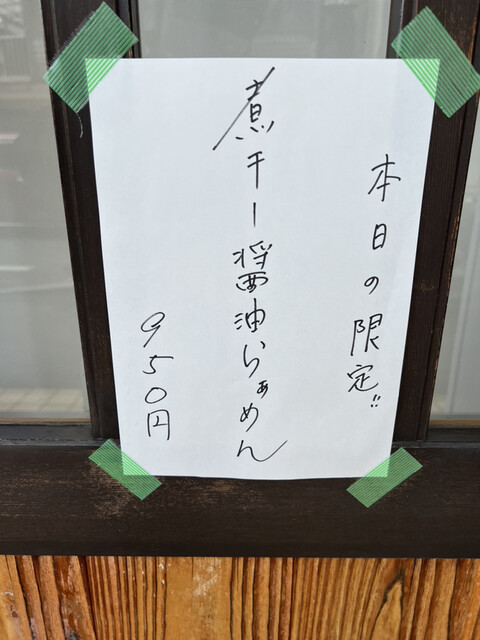 本日の限定!!
煮干ー醤油らぁめん
950円